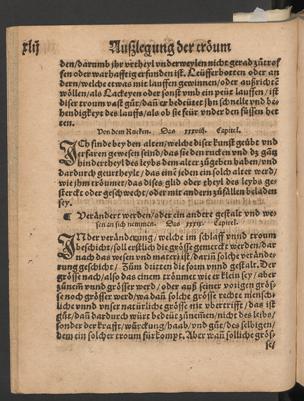 xlij Außlegung der tröum
den/darumb jhr vrtheyl vnderweylen nicht gerad zůtrof
fen oder warhafftig erfunden ist. Leüfferbotten oder an
dern/welche etwas mit lauffen gewinnen/oder außrichtē
wöllen/als Lackeyen oder sonst vmb ein peüt lauffen/ ist
diser troum vast gůt/dañ er bedeütet jhn schnelle vnd be
hendigkeyt des lauffs/als ob sie feür vnder den füssen het
ten.
Von dem Rucken. Das xxxviij. Capitel.
ICh finde bey den alten/welche diser kunst geübt vnd
erfaren gewesen seind/das sie den rucken vnd dz gātz
hindertheyl des leybs dem alter zůgeben haben/vnd
dardurch geurtheylt/das eine jeden ein solch alter werd/
wie jhm tröumet/das dises glid oder theyl des leybs ge
sterckt oder geschwecht/oder mit andern zůfällen beladen
sey.
Verändert werden/oder ein andere gestalt vnd we
sen an sich nemmen. Das xxxix. Capitel.
IN der veränderung/ welche im schlaff vnnd troum
beschicht/soll erstlich die grösse gemerckt werden/dar
nach das wesen vnd materi ist/darin solche verände
rung geschicht. Zům dritten die form vnnd gestalt. Der
grösse nach/also das einem tröumet wie er klein sey/ aber
zůnem vnnd grösser werd/ oder auß seiner vorigen grös
se noch grösser werd/wa dañ solche grösse rechte mensch
liche vnnd vnser natürliche grösse nit übertrifft/ das ist
gůt/dañ dardurch würt bedeüt zůnemen/nicht des leibs/
sonder der krafft/würckung/haab/vnd gůt/des selbigen/
dem ein solcher troum fürkompt. Aber wañ solliche grös-
se/